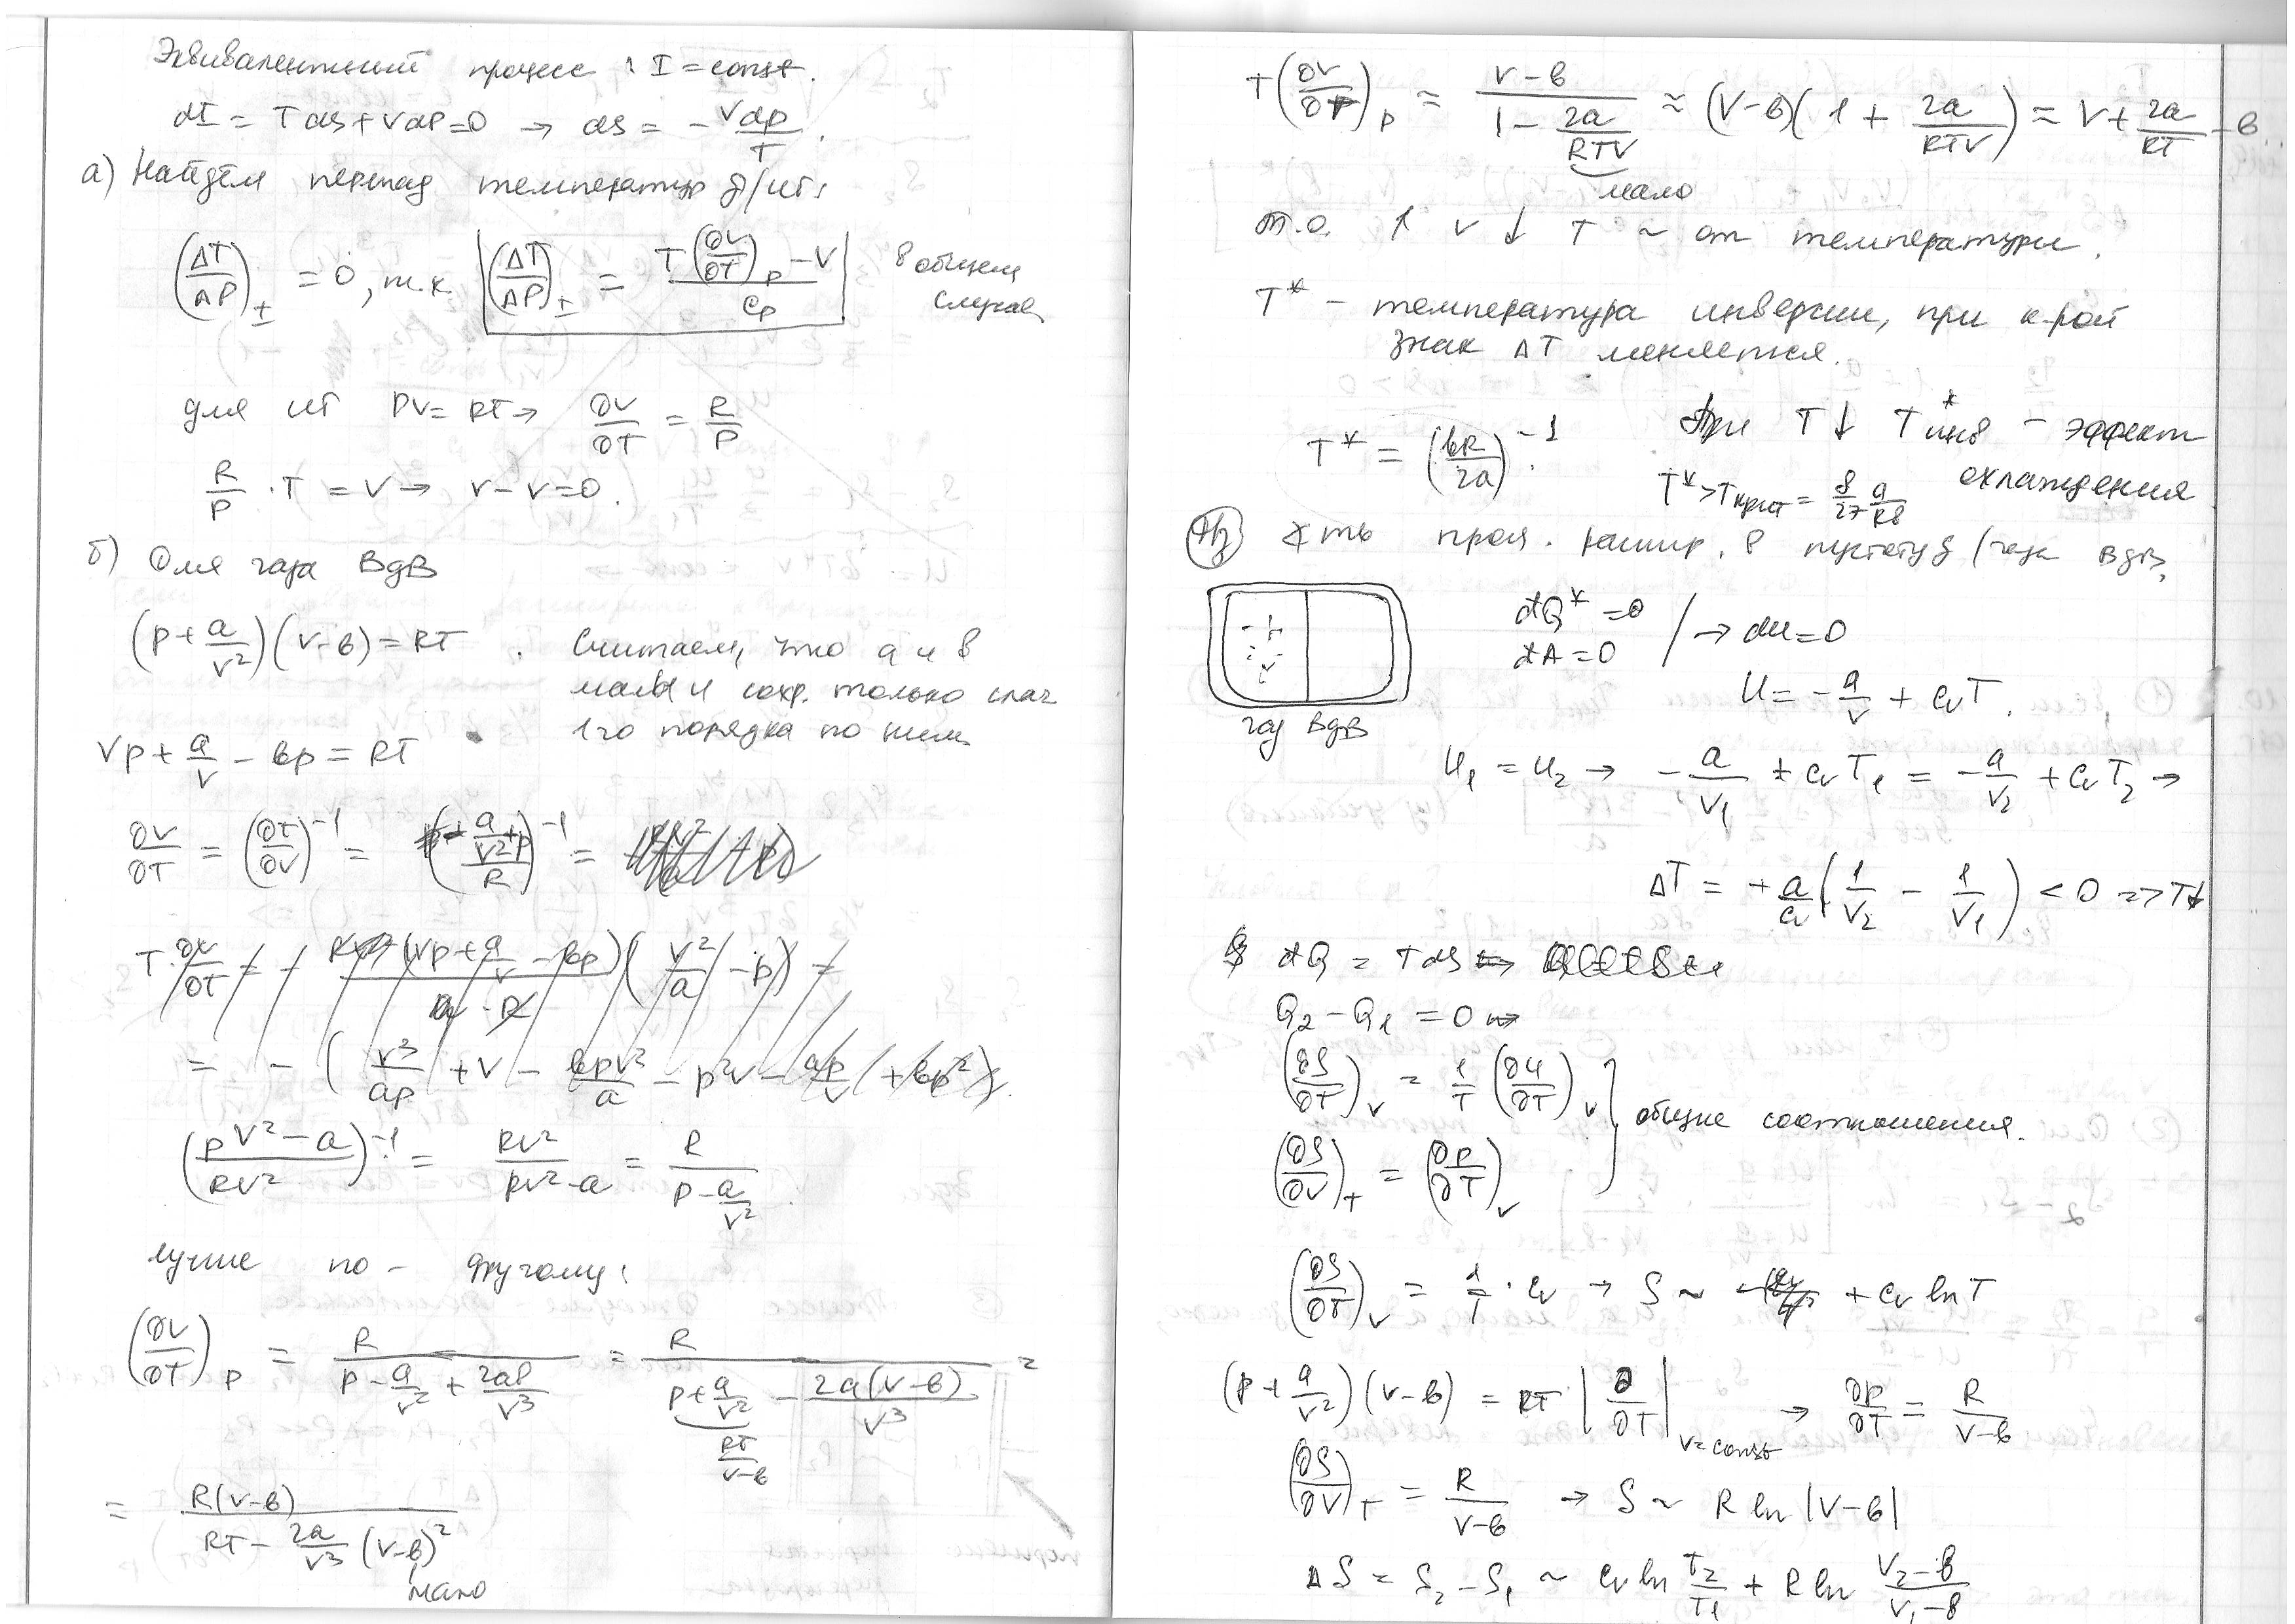 Эквивалентный процесс: I = const.
dI = TdS + VdP = 0 → dS = - Vdp/T.
а) Найдём перепад температур д/ИГ:
(ΔT/ΔP)_I = 0, т.к. |(ΔT/ΔP)_I = (T(∂V/∂T)_P - V)/C_P| в общем случае
для ИГ PV = RT → ∂V/∂T = R/P
R/P · T = V → V - V = 0.
б) Для газа ВдВ
(P + a/V²)(V - b) = RT. Считаем, что a и b
малы и сохр. только слаг
1го порядка по ним.
Vp + a/V - bp = RT
∂V/∂T = (∂T/∂V)^-1 =
((pV² - a)/RV²)^-1 = RV²/(pV² - a) = R/(P - a/V²).
лучше по-другому:
(∂V/∂T)_P = R/(P - a/V² + 2ab/V³) = R/(P + a/V² - 2a(V-b)/V³) =
RT/(V-b)
= R(V-b)/(RT - 2a/V³ (V-b)²)
мало
T(∂V/∂T)_P = (V-b)/(1 - 2a/RTV) ≈ (V-b)(1 + 2a/RTV) ≈ V + 2a/RT - b
мало
т.о. ↑ V ↓ T ~ от температуры.
T* - температура инверсии, при к-рой
знак ΔT меняется.
T* = (bR/2a)^-1. При T ↓ T*инв - эффект
охлаждения
T* > Tкрит = 8/27 a/Rb
проц. расшир. в пустоту д/газа ВдВ.
đQ* = 0
đA = 0 / → dU = 0
газ ВдВ
U = - a/V + C_V T.
U₁ = U₂ → - a/V₁ + C_V T₁ = - a/V₂ + C_V T₂ →
ΔT = + a/C_V (1/V₂ - 1/V₁) < 0 => T↓
đQ = TdS
Q₂ - Q₁ = 0 →
(∂S/∂T)_V = 1/T (∂U/∂T)_V
(∂S/∂V)_T = (∂p/∂T)_V } общие соотношения.
(∂S/∂T)_V = 1/T · C_V → S ~ + C_V ln T
(P + a/V²)(V - b) = RT |∂/∂T|_V=const → ∂p/∂T = R/(V-b)
(∂S/∂V)_T = R/(V-b) → S ~ R ln |V-b|
ΔS = S₂ - S₁ ~ C_V ln T₂/T₁ + R ln (V₂-b)/(V₁-b)